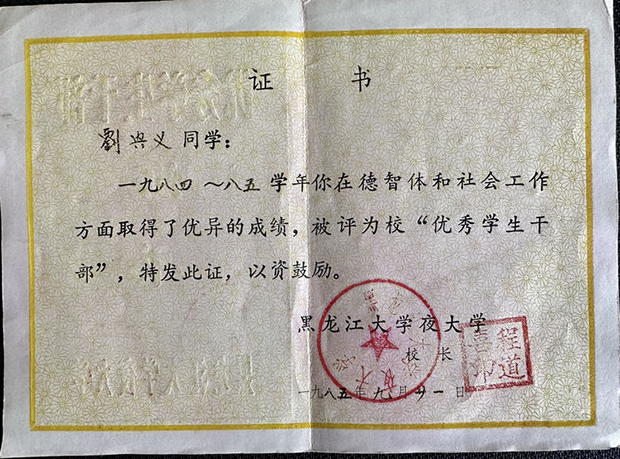 证 书
劉兴义 同学：
一九八四～八五学年你在德智体和社会工作
方面取得了优异的成绩，被评为校“优秀学生干
部”，特发此证，以资鼓励。
黑龙江大学夜大学
校 长
程道喜印
一九八五年九月廿一日